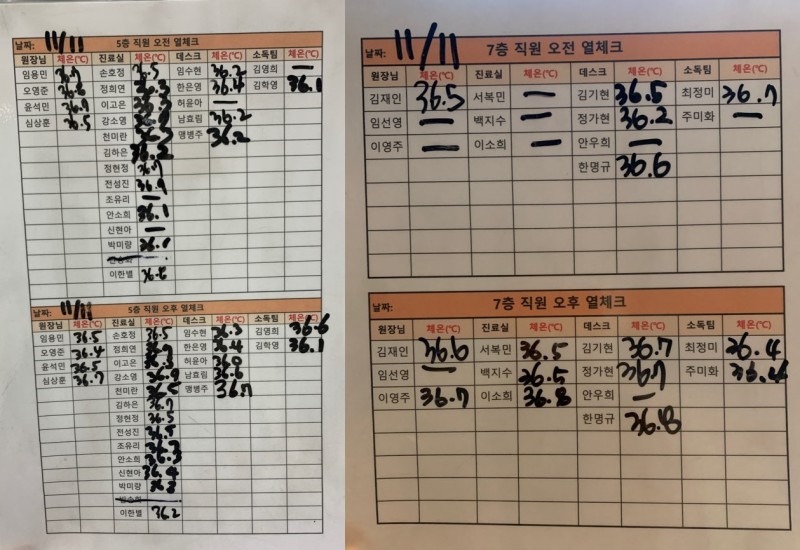 날짜: 11/11 5층 직원 오전 열체크
원장님 체온(℃) 진료실 체온(℃) 데스크 체온(℃) 소독팀 체온(℃)
임용민 손호정 임수현 36.2 김영희 —
오영준 정희연 한은영 36.4 김학영 36.1
윤석민 36.7 이고은 허윤아 —
심상훈 36.5 강소영 남효림 36.2
천미란 맹병주 36.2
김하은 36.2
정현정 36.7
전성진 36.9
조유리 —
안소희 36.1
신현아 —
박미량
이한별 36.2
날짜: 11/11 5층 직원 오후 열체크
원장님 체온(℃) 진료실 체온(℃) 데스크 체온(℃) 소독팀 체온(℃)
임용민 36.5 손호정 36.5 임수현 36.5 김영희 36.6
오영준 36.4 정희연 한은영 36.4 김학영 36.1
윤석민 36.5 이고은 허윤아 36.0
심상훈 36.7 강소영 남효림 36.6
천미란 36.5 맹병주 36.7
김하은 36.7
정현정 36.5
전성진
조유리 36.3
안소희 36.3
신현아 36.4
박미량
이한별 36.2
날짜: 11/11 7층 직원 오전 열체크
원장님 체온(℃) 진료실 체온(℃) 데스크 체온(℃) 소독팀 체온(℃)
김재인 36.5 서복민 — 김기현 36.5 최정미 36.7
임선영 — 백지수 — 정가현 36.2 주미화 —
이영주 — 이소희 — 안우희 —
한명규 36.6
날짜: 7층 직원 오후 열체크
원장님 체온(℃) 진료실 체온(℃) 데스크 체온(℃) 소독팀 체온(℃)
김재인 36.6 서복민 36.5 김기현 36.7 최정미 36.4
임선영 — 백지수 36.5 정가현 36.7 주미화 36.4
이영주 36.7 이소희 36.8 안우희 —
한명규 36.8